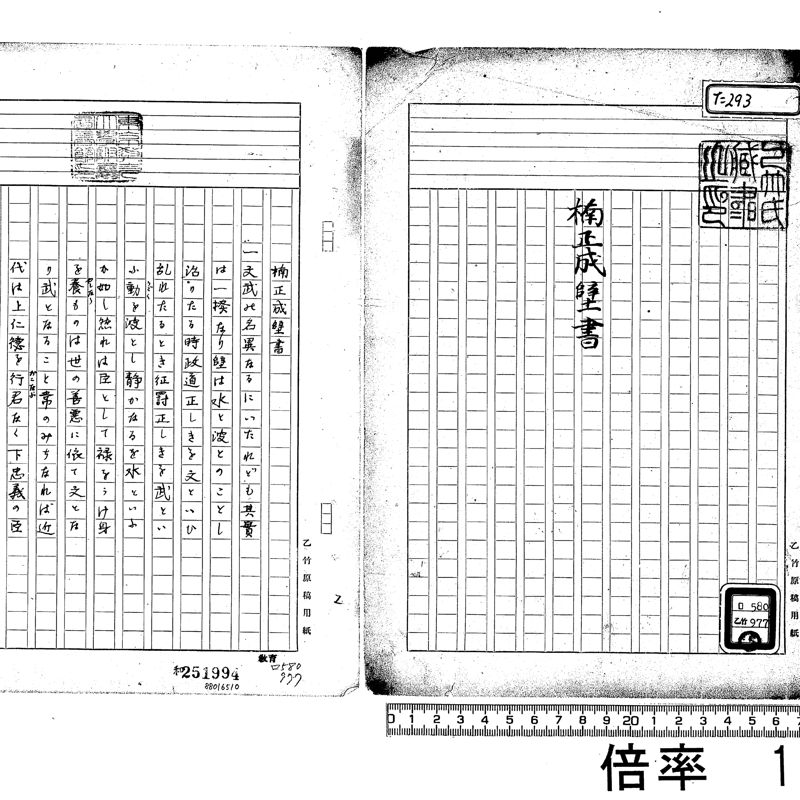 T=293
楠正成壁書
乙竹原稿用紙
ロ 580
乙竹 977
楠正成壁書
一文武の名異なるにいたれども其貫
は一揆なり譬は水と波とのことし
治りたる時政道正しきを文といひ
乱れたるとき征罸正しきを武とい
ふ動を波とし静かなるを水といふ
か如し然れは臣として禄をうけ身
を養ものは世の善悪に依て文とな
り武となること常のみちなれば近
代は上仁徳を行君なく下忠義の臣
乙竹原稿用紙
2
教育
和251994
ロ580
977
88016510
0 1 2 3 4 5 6 7 8 9 20 1 2 3 4 5 6 7
倍率 1